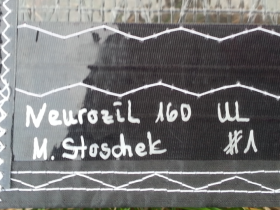 Neurozil 160 UL
M. Stoschek #1